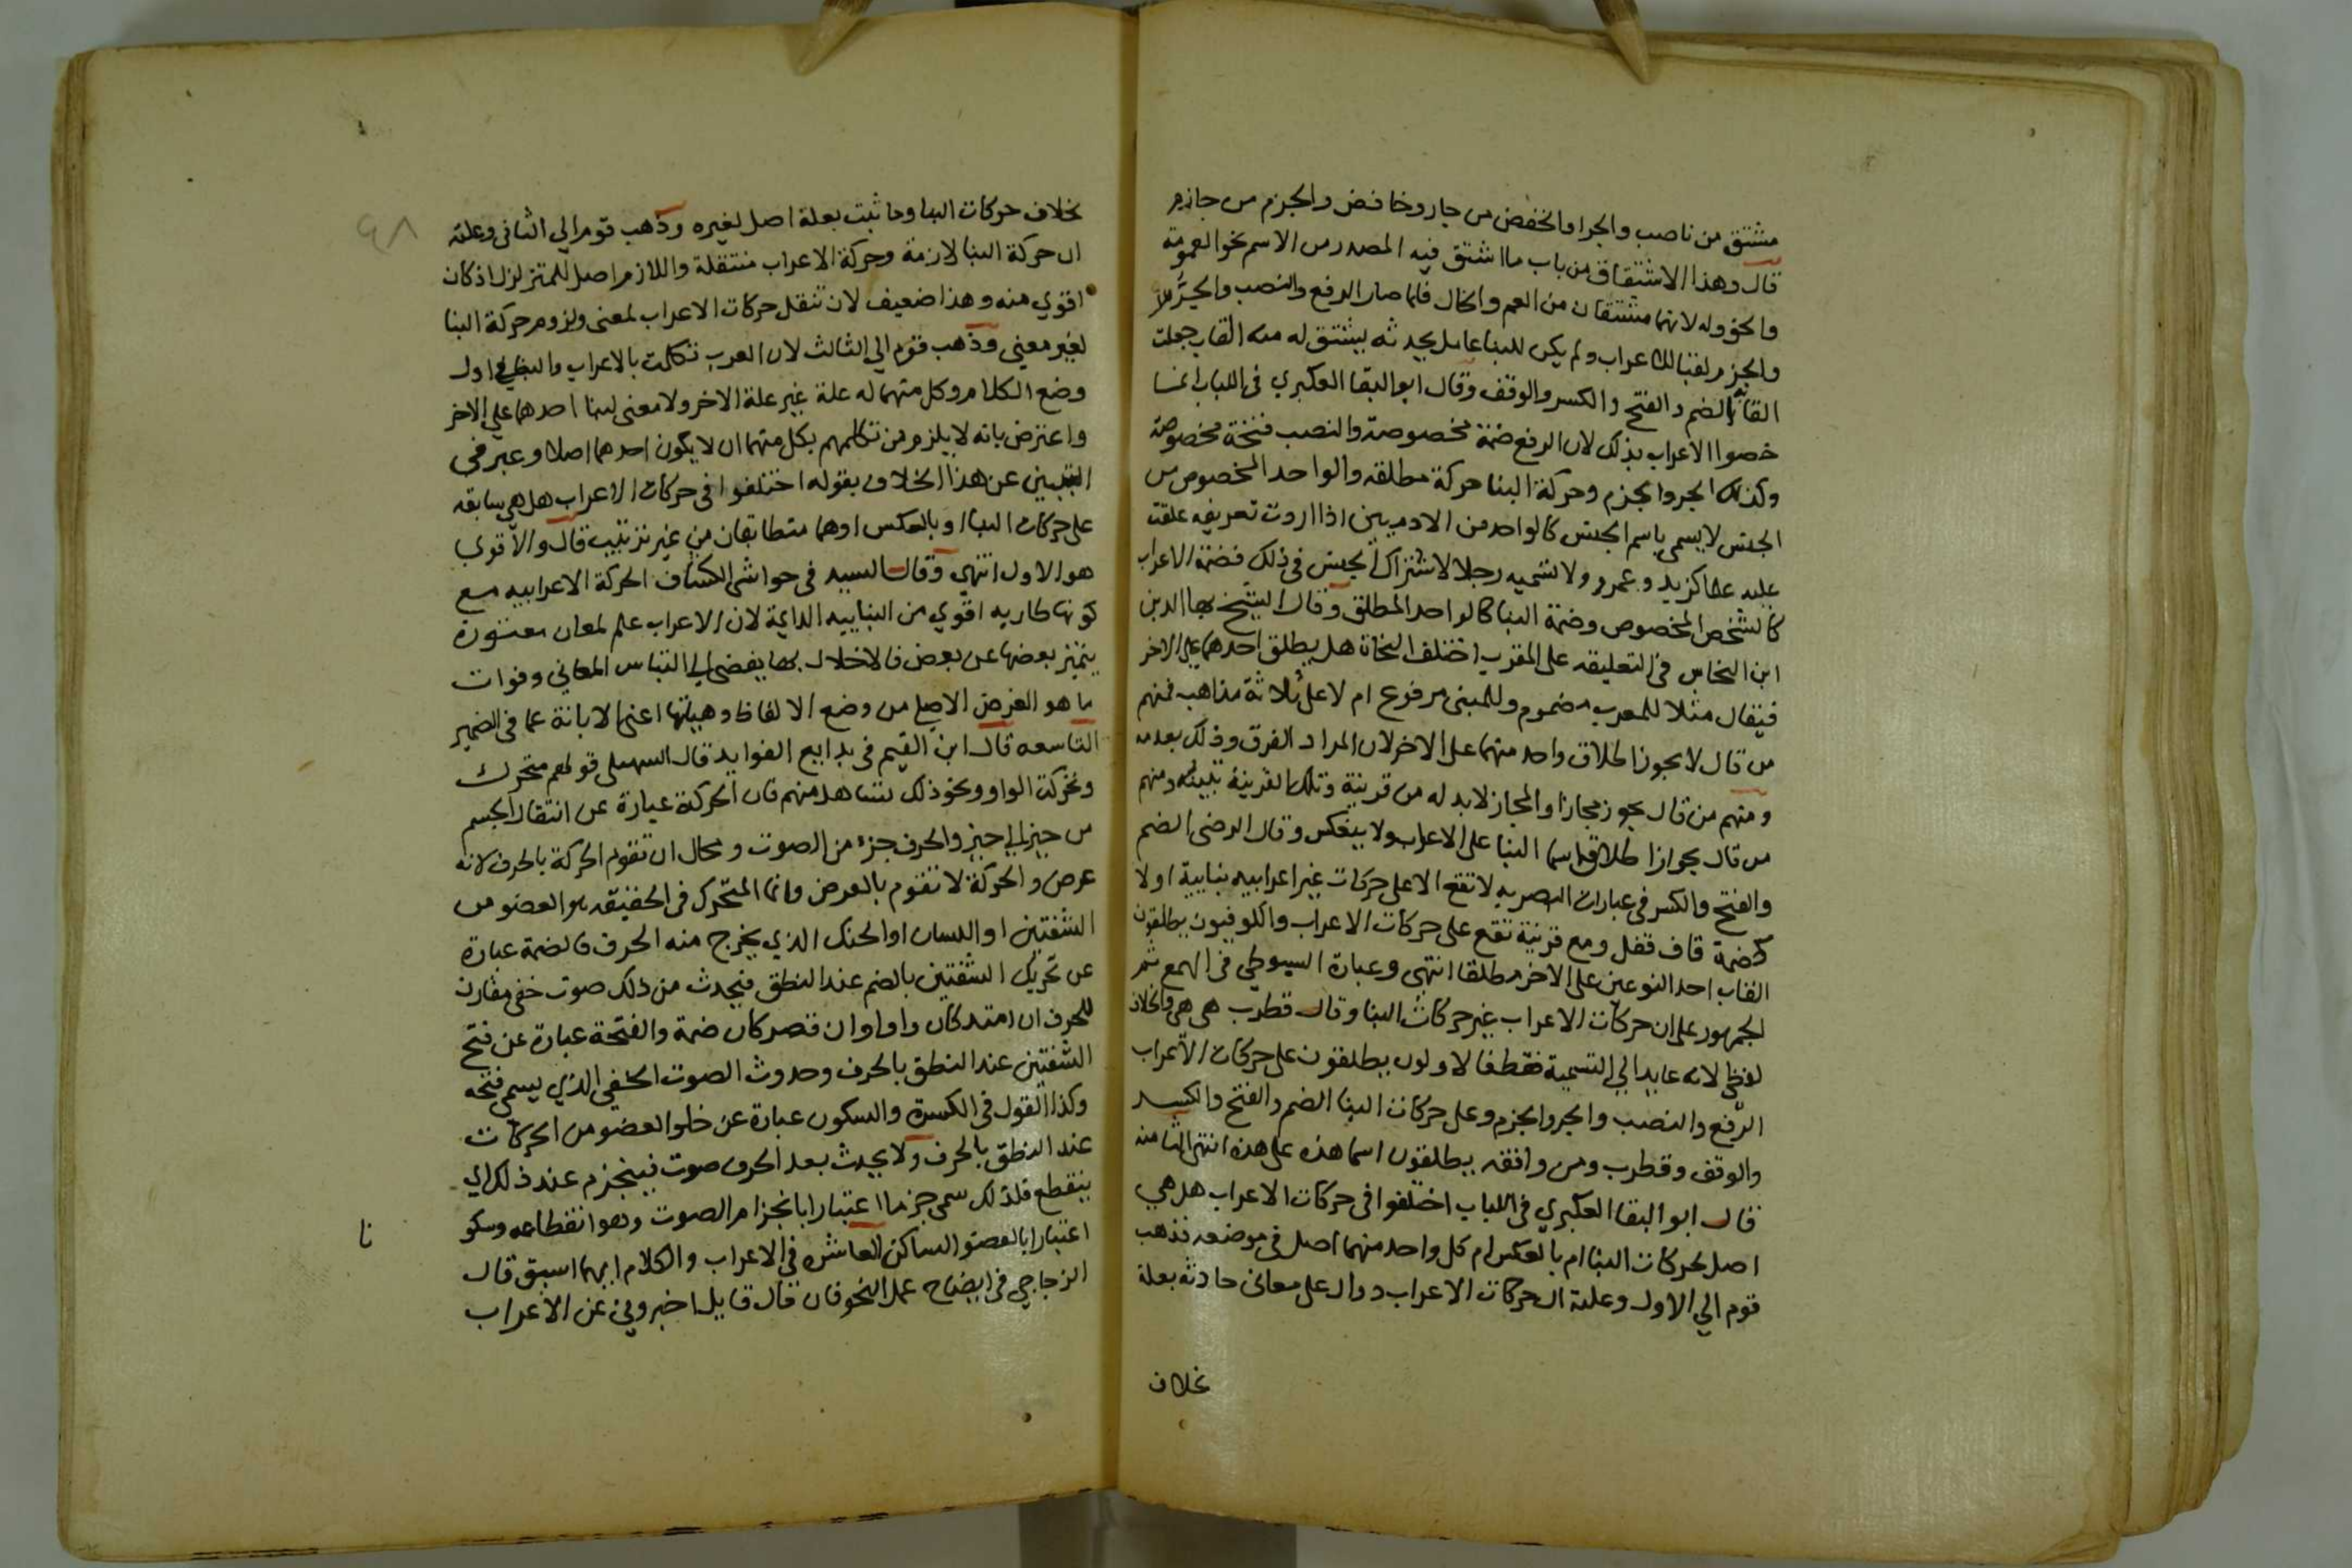 مشتق من ناصب والجر والخفض من جار وخافض والجزم من جازم
قال وهذا الاشتقاق من باب ما اشتق فيه المصدر من الاسم نحو العمومة
والخؤوله لانهما مشتقان من العم والخال فلما صار الرفع والنصب والجر
والجزم لقبا للاعراب ولم يكن للبنا عامل يحدثه يشتق له منه القاب جعلت
القابه الضم والفتح والكسر والوقف وقال ابو البقا العكبري في اللباب انما
خصوا الاعراب بذلك لان الرفع ضمة مخصوصة والنصب فتحة مخصوصة
وكذلك الجر والجزم وحركة البنا حركة مطلقه والواحد المخصوص من
الجنس لا يسمى باسم الجنس كالواحد من الادميين اذا اردت تعريفه علقت
عليه علما كزيد وعمرو ولا تسميه رجلا لاشتراك الجنس في ذلك فضمة الاعراب
كالشخص المخصوص وضمة البنا كالواحد المطلق وقال الشيخ بها الدين
ابن النحاس في التعليقه على المقرب اختلف النحاة هل يطلق احدهما على الاخر
فيقال مثلا للمعرب مضموم وللمبنى مرفوع ام لا على ثلاثة مذاهب فمنهم
من قال لا يجوز اطلاق واحد منهما على الاخر لان المراد الفرق وذلك بعدمه
ومنهم من قال يجوز مجازا والمجاز لابد له من قرينة وتلك القرينة تبينه ومنهم
من قال يجوز اطلاق اسما البنا على الاعراب ولا ينعكس وقال الرضى الضم
والفتح والكسر في عبارات البصريه لا تقع الا على حركات غير اعرابيه بنايية او لا
كضمة قاف قفل ومع قرينة تقع على حركات الاعراب والكوفيون يطلقون
القاب احد النوعين على الاخر مطلقا انتهى وعبارة السيوطي في الهمع ثم
الجمهور على ان حركات الاعراب غير حركات البنا وقال قطرب هى هى والخلاف
لفظي لانه عايد الي التسمية فقط فالاولون يطلقون على حركات الاعراب
الرفع والنصب والجر والجزم وعلى حركات البنا الضم والفتح والكسر
والوقف وقطرب ومن وافقه يطلقون اسما هذه على هذه انتهى الثامنه
قال ابو البقا العكبري في اللباب اختلفوا في حركات الاعراب هل هي
اصل لحركات البنا ام بالعكس ام كل واحد منهما اصل في موضعه فذهب
قوم الي الاول وعلته ان حركات الاعراب دوال على معاني حادثه بعلة
بخلاف
بخلاف حركات البنا وما ثبت بعلة اصل لغيره وذهب قوم الي الثانى وعلته
ان حركة البنا لازمة وحركة الاعراب منتقلة واللازم اصل للمتزلزل اذ كان
اقوي منه وهذا ضعيف لان تنقل حركات الاعراب لمعنى ولزوم حركة البنا
لغير معني وذهب قوم الي الثالث لان العرب تكلمت بالاعراب والبنا في اول
وضع الكلام وكل منهما له علة غير علة الاخر ولا معنى لبنا احدهما علي الاخر
واعترض بانه لا يلزم من تكلمهم بكل منهما ان لا يكون احدهما اصلا وعبر في
التبيين عن هذا الخلاف بقوله اختلفوا في حركات الاعراب هل هي سابقه
على حركات البنا او بالعكس او هما متطابقان من غير ترتيب قال والاقوي
هو الاول انتهي وقال السيد في حواشى الكشاف الحركة الاعرابيه مع
كونها طاريه اقوي من البناييه الدايمة لان الاعراب علم لمعان معتورة
يتميز بعضها عن بعض فالاخلال بها يفضي الي التباس المعاني وفوات
ما هو الغرض الاصلي من وضع الالفاظ وهيئتها اعني الابانة عما في الضمير
التاسعه قال ابن القيم في بدايع الفوايد قال السهيلى قولهم متحرك
وتحركت الواو ونحو ذلك تساهل منهم فان الحركة عبارة عن انتقال الجسم
من حيز الي حيز والحرف جزء من الصوت ومحال ان تقوم الحركة بالحرف لانه
عرض والحركة لا تقوم بالعرض وانما المتحرك في الحقيقه هو العضو من
الشفتين او اللسان او الحنك الذي يخرج منه الحرف فالضمة عبارة
عن تحريك الشفتين بالضم عند النطق فيحدث من ذلك صوت خفي مقارن
للحرف ان امتد كان واوا وان قصر كان ضمة والفتحة عبارة عن فتح
الشفتين عند النطق بالحرف وحدوث الصوت الخفي الذي يسمى فتحه
وكذا القول في الكسرة والسكون عبارة عن خلو العضو من الحركات
عند النطق بالحرف ولا يحدث بعد الحرف صوت فينجزم عند ذلك اي
ينقطع فلذلك سمي جزما اعتبارا بانجزام الصوت وهو انقطاعه وسكو نا
اعتبارا بالعضو الساكن العاشره في الاعراب والكلام ايهما اسبق قال
الزجاجي في ايضاح علل النحو فان قال قايل اخبروني عن الاعراب